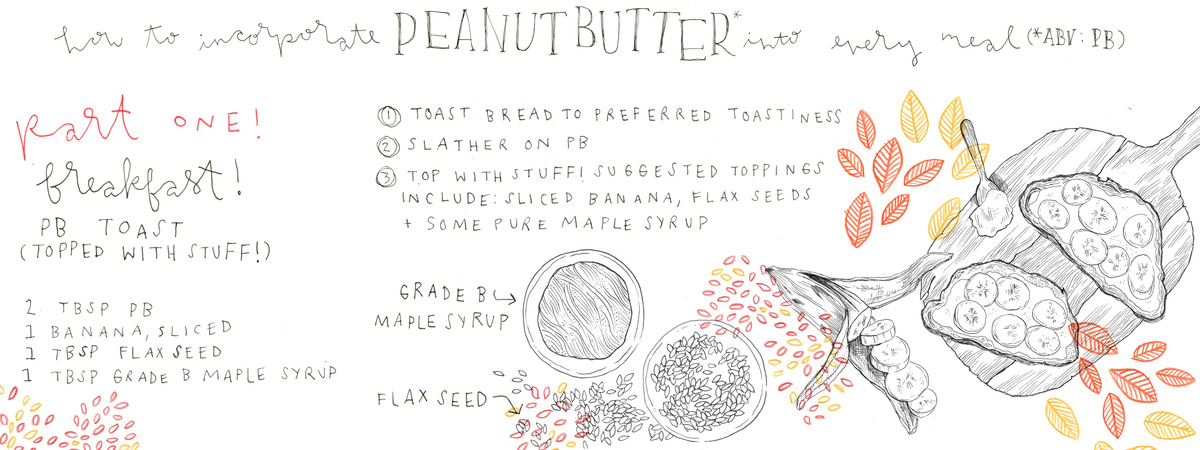 how to incorporate PEANUTBUTTER* into every meal (*ABV: PB)
part ONE!
breakfast!
PB TOAST
(TOPPED WITH STUFF!)
2 TBSP PB
1 BANANA, SLICED
1 TBSP FLAX SEED
1 TBSP GRADE B MAPLE SYRUP
1 TOAST BREAD TO PREFERRED TOASTINESS
2 SLATHER ON PB
3 TOP WITH STUFF! SUGGESTED TOPPINGS
INCLUDE: SLICED BANANA, FLAX SEEDS
+ SOME PURE MAPLE SYRUP
GRADE B
MAPLE SYRUP
FLAX SEED